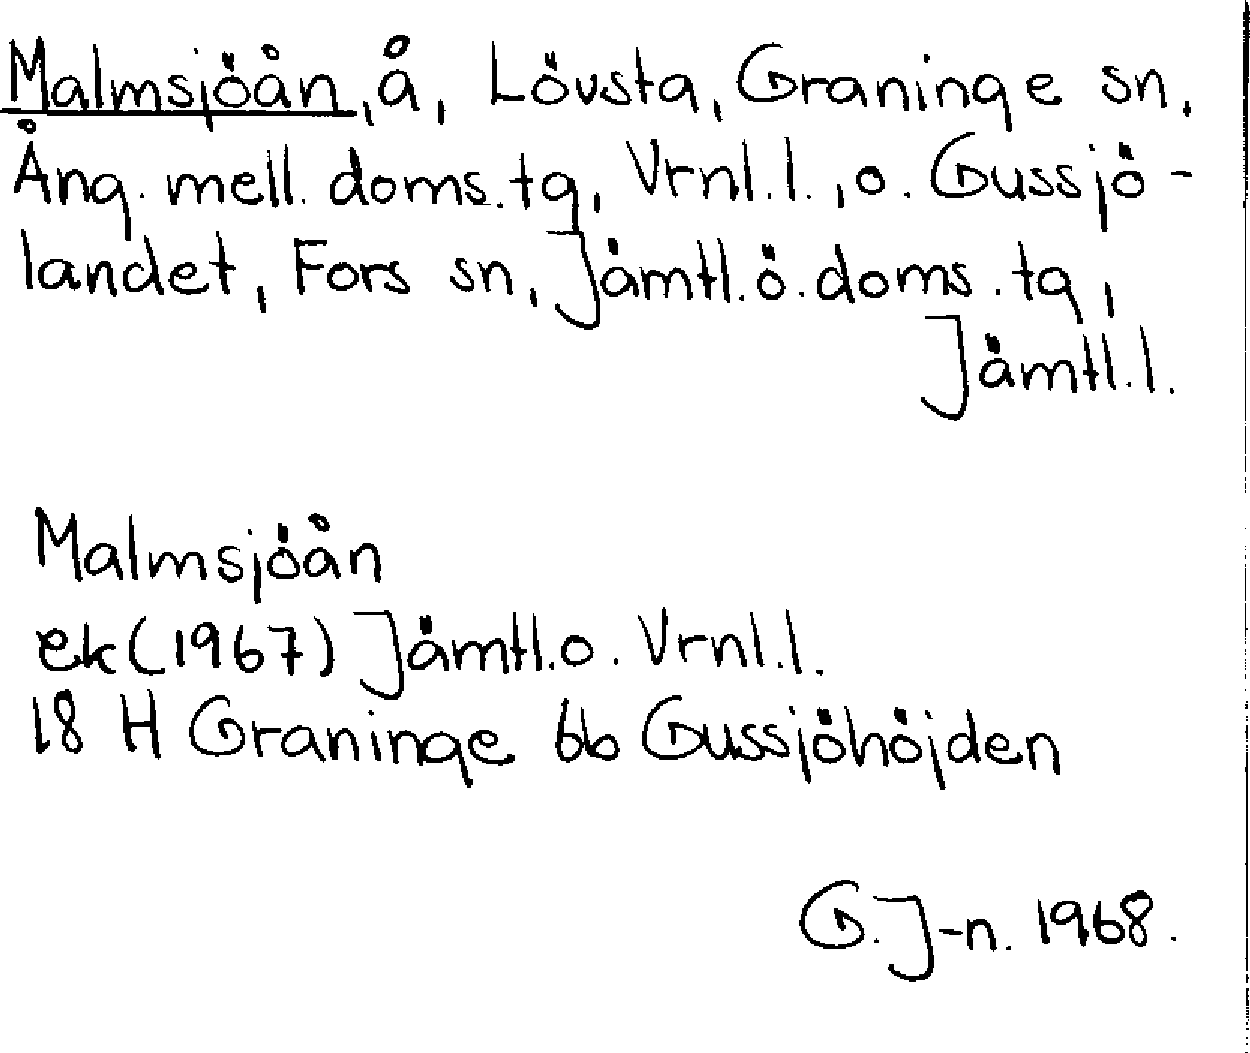 Malmsjöån, å, Lövsta, Graninge sn,
Ång. mell. doms.tg, Vrnl.l., o. Gussjö-
landet, Fors sn, Jämtl.ö.doms.tg,
Jämtl.l.
Malmsjöån
ek(1967) Jämtl.o. Vrnl.l.
18 H Graninge 6b Gussjöhöjden
G.J-n. 1968.